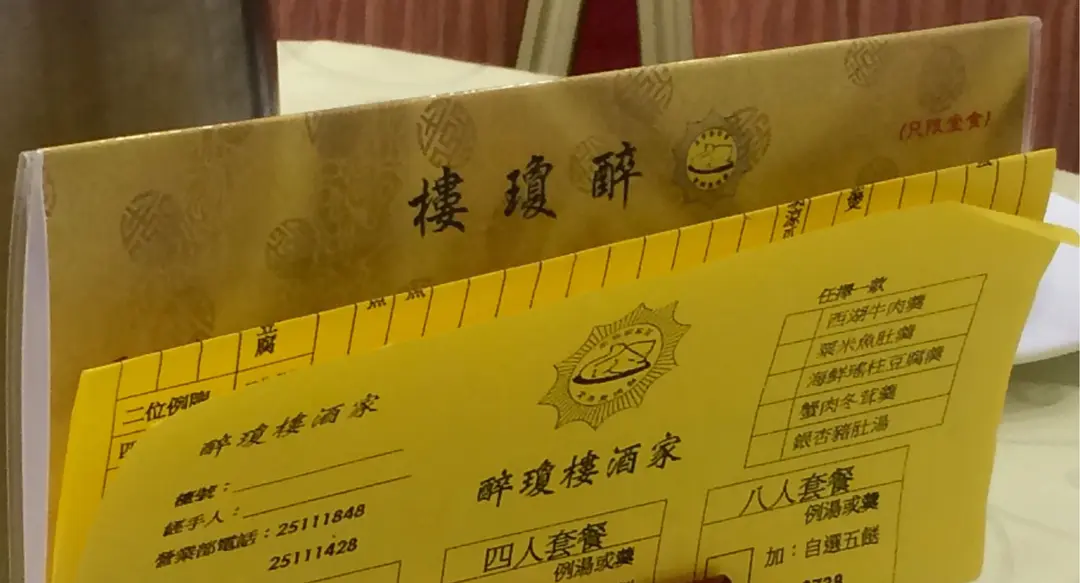 醉瓊樓
(只限堂食)
豆腐
二位例牌
四
醉瓊樓酒家
檯號：
經手人：
營業部電話：25111848
25111428
醉瓊樓酒家
四人套餐
例湯或羹
任擇一款
西湖牛肉羹
粟米魚肚羹
海鮮瑤柱豆腐羹
蟹肉冬茸羹
銀杏豬肚湯
八人套餐
例湯或羹
加：自選五餸